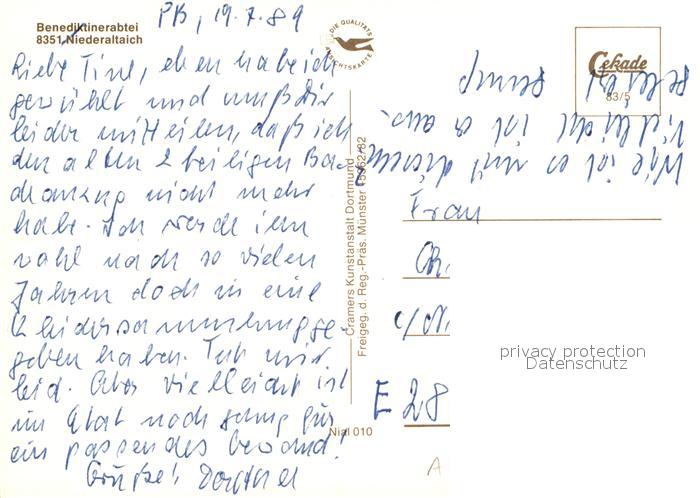 Benediktinerabtei
8351 Niederaltaich
PB, 19.7.89
Liebe Tine, eben habe ich
gewühlt und muß Dir
leider mitteilen, daß ich
den alten 2 teiligen Ba
deanzug nicht mehr
habe. Ich werde ihn
wohl nach so vielen
Jahren doch in eine
Kleidersammlung ge
geben haben. Tut mir
leid. Aber vielleicht ist
im Etat noch genug für
ein passendes Gewand!
Grüße!
DIE QUALITÄTS
ANSICHTSKARTE
Cramers Kunstanstalt Dortmund
Freigeg. d. Reg.-Präs. Münster
Nial 010
Cekade
83/5
Wie ist es mit diesem?
Vielleicht ist es aus.
Frau
c/
E 28
A
privacy protection
Datenschutz